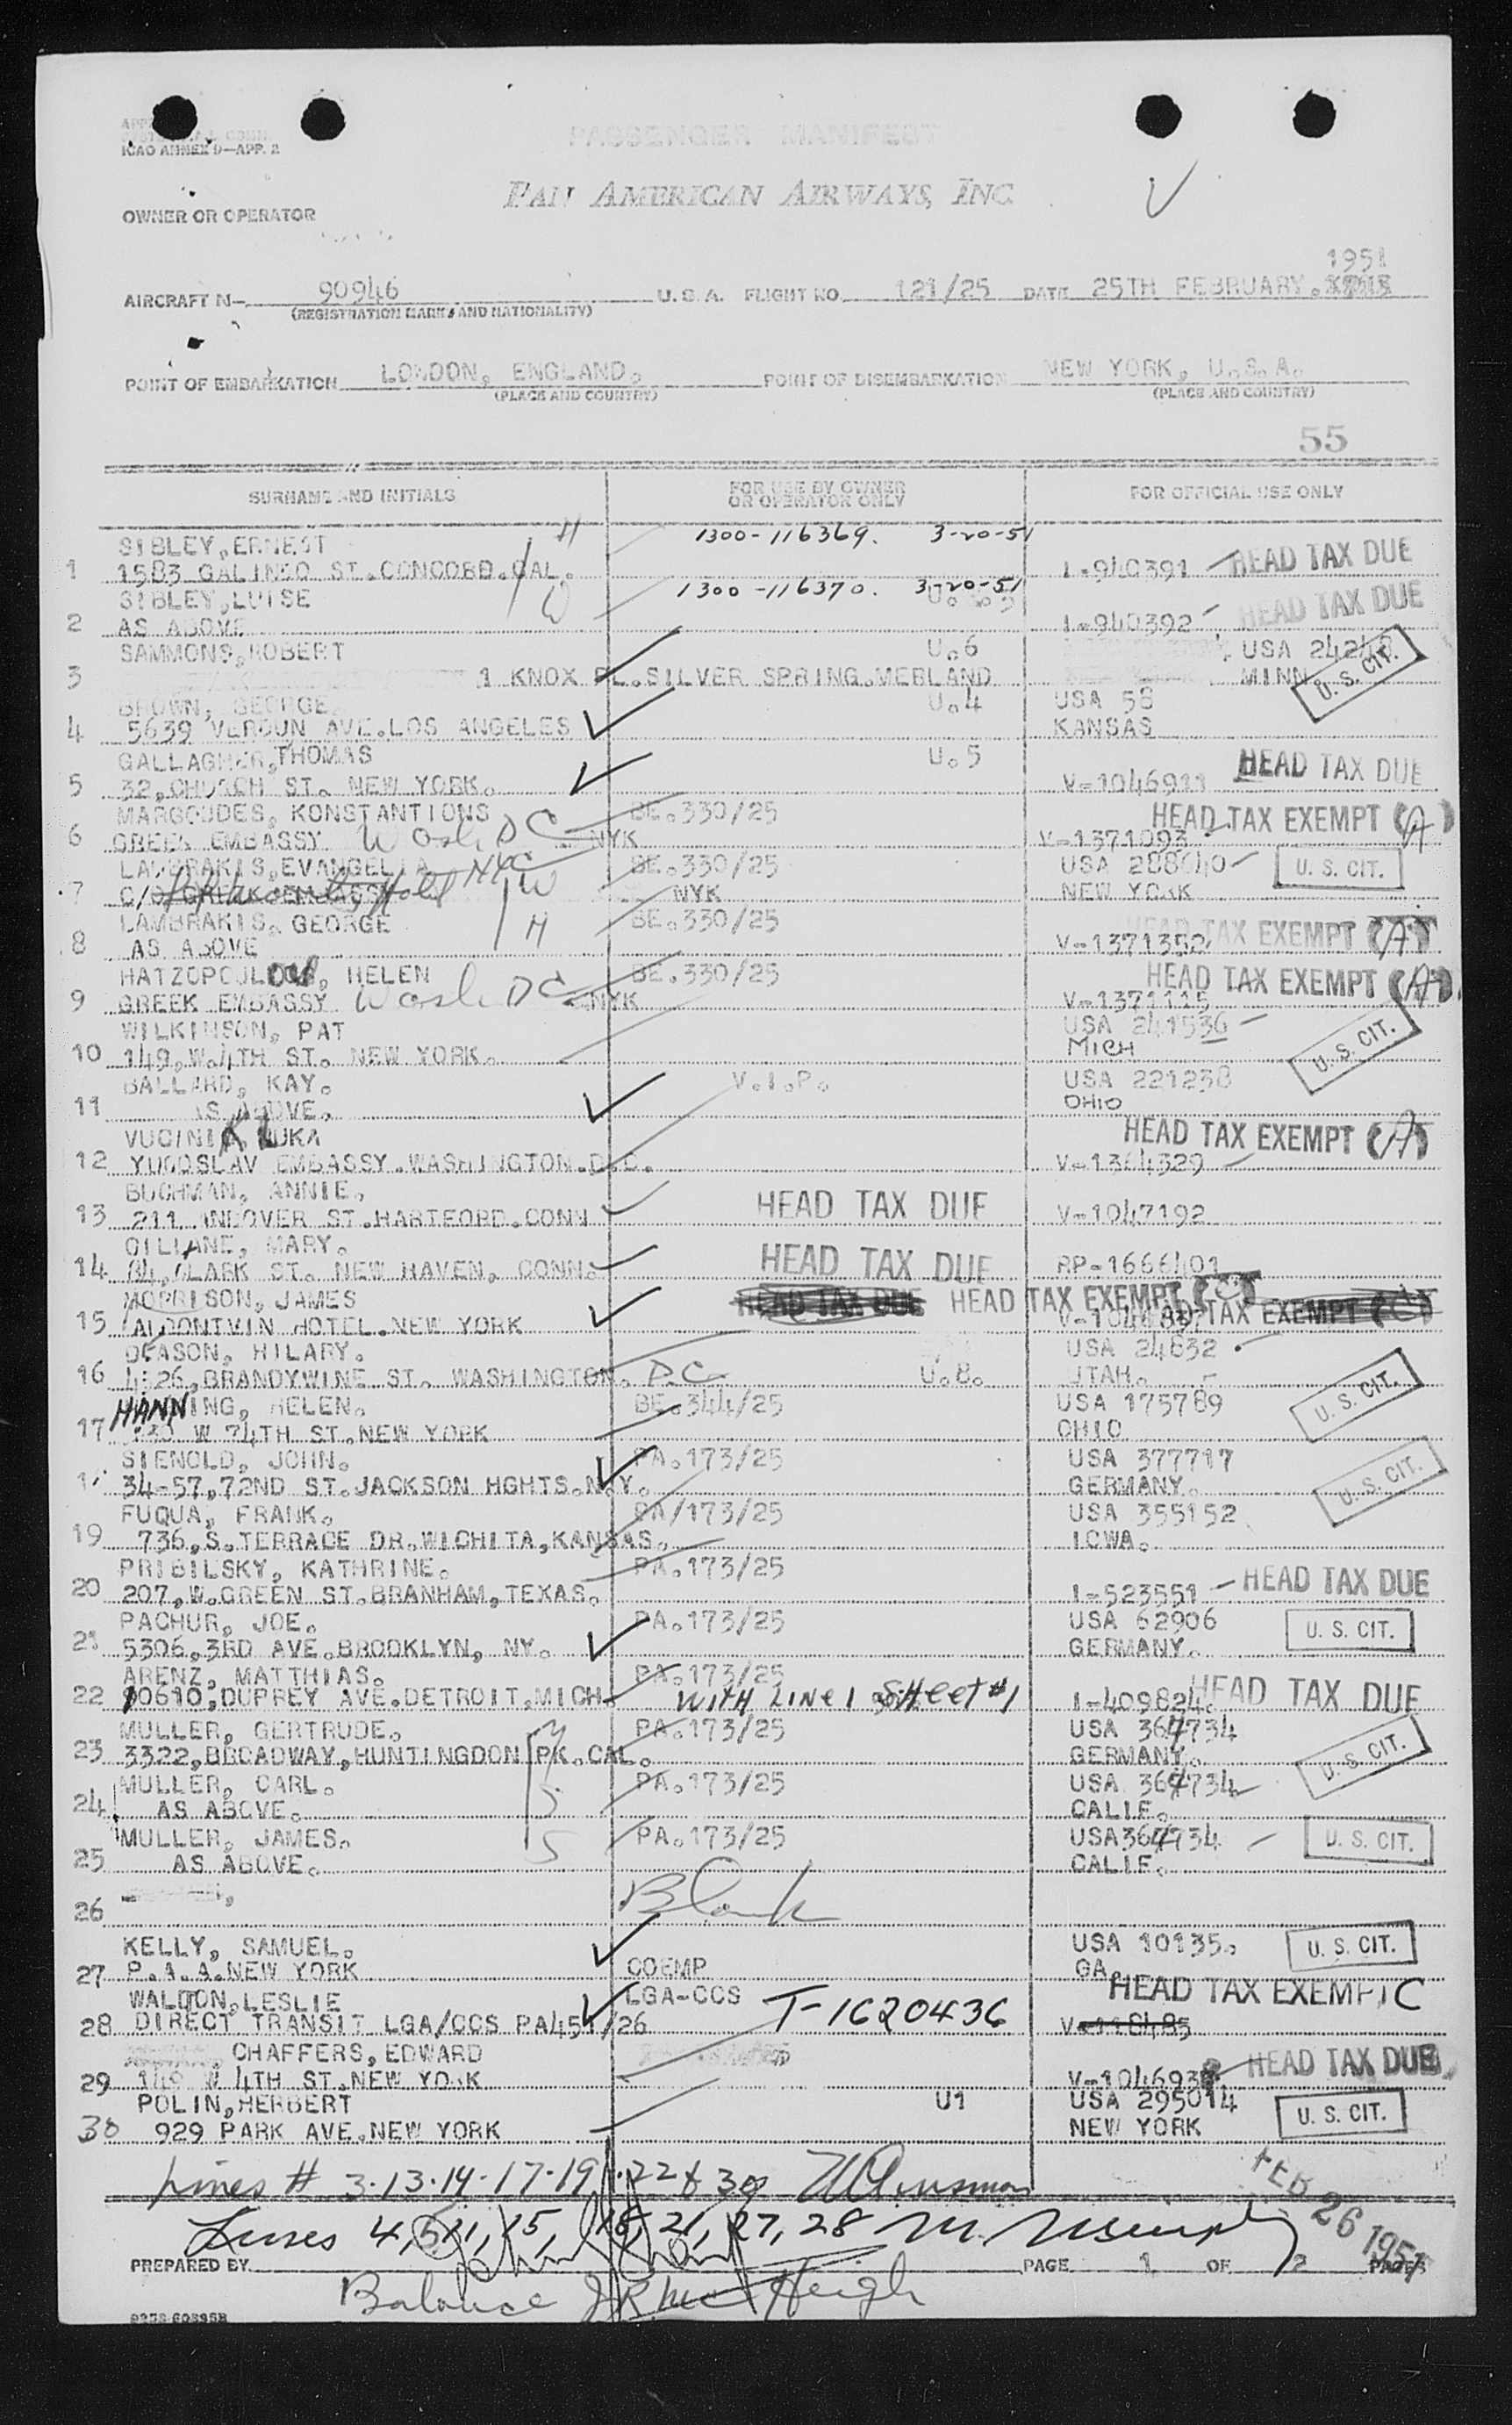 ICAO ANNEX 9—APP. 2
PASSENGER MANIFEST
PAN AMERICAN AIRWAYS, INC.
OWNER OR OPERATOR
1951
AIRCRAFT N— 90946 U.S.A. FLIGHT NO. 121/25 DATE 25TH FEBRUARY.
(REGISTRATION MARKS AND NATIONALITY)
POINT OF EMBARKATION LONDON, ENGLAND. POINT OF DISEMBARKATION NEW YORK, U.S.A.
(PLACE AND COUNTRY) (PLACE AND COUNTRY)
55
SURNAME AND INITIALS FOR USE BY OWNER OR OPERATOR ONLY FOR OFFICIAL USE ONLY
SIBLEY, ERNEST H 1300-116369. 3-20-51
1 1583 GALINDO ST. CONCORD. CAL. I-940391 HEAD TAX DUE
SIBLEY, LUISE W 1300-116370. 3-20-51
2 AS ABOVE I-940392 HEAD TAX DUE
SAMMONS, ROBERT U.6 USA 24248
3 1 KNOX PL. SILVER SPRING. MERLAND MINN U.S. CIT.
BROWN, GEORGE U.4 USA 58
4 5639 VERDUN AVE. LOS ANGELES KANSAS
GALLAGHER, THOMAS U.5
5 32, CHURCH ST. NEW YORK. V-1046911 HEAD TAX DUE
MARGOUDES, KONSTANTIONS BE.330/25 HEAD TAX EXEMPT (A)
6 GREEK EMBASSY Wash DC NYK V-1371093
LAMBRAKIS, EVANGELIA NYC BE.330/25 USA 288640 U. S. CIT.
7 C/O GREEK EMBASSY Hotel W NYK NEW YORK
LAMBRAKIS, GEORGE H BE.330/25 HEAD TAX EXEMPT (A)
8 AS ABOVE V-1371352
HATZOPOULOU, HELEN BE.330/25 HEAD TAX EXEMPT (A)
9 GREEK EMBASSY Wash DC NYK V-1371115
WILKINSON, PAT USA 241536
10 149, W. 4TH ST. NEW YORK. MICH U. S. CIT.
BALLARD, KAY. V.I.P. USA 221238
11 AS ABOVE. OHIO
VUCINIK LUKA HEAD TAX EXEMPT (A)
12 YUGOSLAV EMBASSY. WASHINGTON. D.C. V-1364329
BUCHMAN, ANNIE.
13 211 ANDOVER ST. HARTFORD. CONN HEAD TAX DUE V-1047192
GILLANE, MARY.
14 84, CLARK ST. NEW HAVEN, CONN. HEAD TAX DUE RP-1666401
MORRISON, JAMES HEAD TAX DUE HEAD TAX EXEMPT (C) HEAD TAX EXEMPT (C)
15 HOTEL. NEW YORK
DEASON, HILARY. USA 24832
16 4526, BRANDYWINE ST. WASHINGTON. D.C U.8. UTAH.
HANNING, HELEN. BE.344/25 USA 175789 U. S. CIT.
17 W 74TH ST. NEW YORK OHIO
SIENOLD, JOHN. PA.173/25 USA 377717
34-57, 72ND ST. JACKSON HGHTS. N.Y. GERMANY. U. S. CIT.
FUQUA, FRANK. PA/173/25 USA 355152
19 736, S. TERRACE DR. WICHITA, KANSAS. IOWA.
PRIBILSKY, KATHRINE. PA.173/25
20 207, W. GREEN ST. BRANHAM, TEXAS. I-523551 HEAD TAX DUE
PACHUR, JOE. PA.173/25 USA 62906 U. S. CIT.
21 5306, 3RD AVE. BROOKLYN, NY. GERMANY.
ARENZ, MATTHIAS. PA.173/25
22 10610, DUPREY AVE. DETROIT. MICH. WITH LINE 1 SHEET #1 I-409824. HEAD TAX DUE
MULLER, GERTRUDE. M PA.173/25 USA 364734
23 3322, BROADWAY, HUNTINGDON PK. CAL. GERMANY. U. S. CIT.
MULLER, CARL. S PA.173/25 USA 364734
24 AS ABOVE. CALIF.
MULLER, JAMES. S PA.173/25 USA 364734 U. S. CIT.
25 AS ABOVE. CALIF.
26 Blank
KELLY, SAMUEL. USA 10135. U. S. CIT.
27 P.A.A. NEW YORK COEMP GA.
WALDON, LESLIE LGA-CCS HEAD TAX EXEMPT C
28 DIRECT TRANSIT LGA/CCS PA451/26 T-1620436 V-118485
CHAFFERS, EDWARD
29 149 W 4TH ST. NEW YORK V-1046938 HEAD TAX DUE
POLIN, HERBERT U1 USA 295014
30 929 PARK AVE. NEW YORK NEW YORK U. S. CIT.
Lines # 3-13-14-17-19-22 & 30
Lines 4, 5, 11, 15, 18, 21, 27, 28
FEB 26 1951
PREPARED BY PAGE 1 OF 2 PAGES
Balance